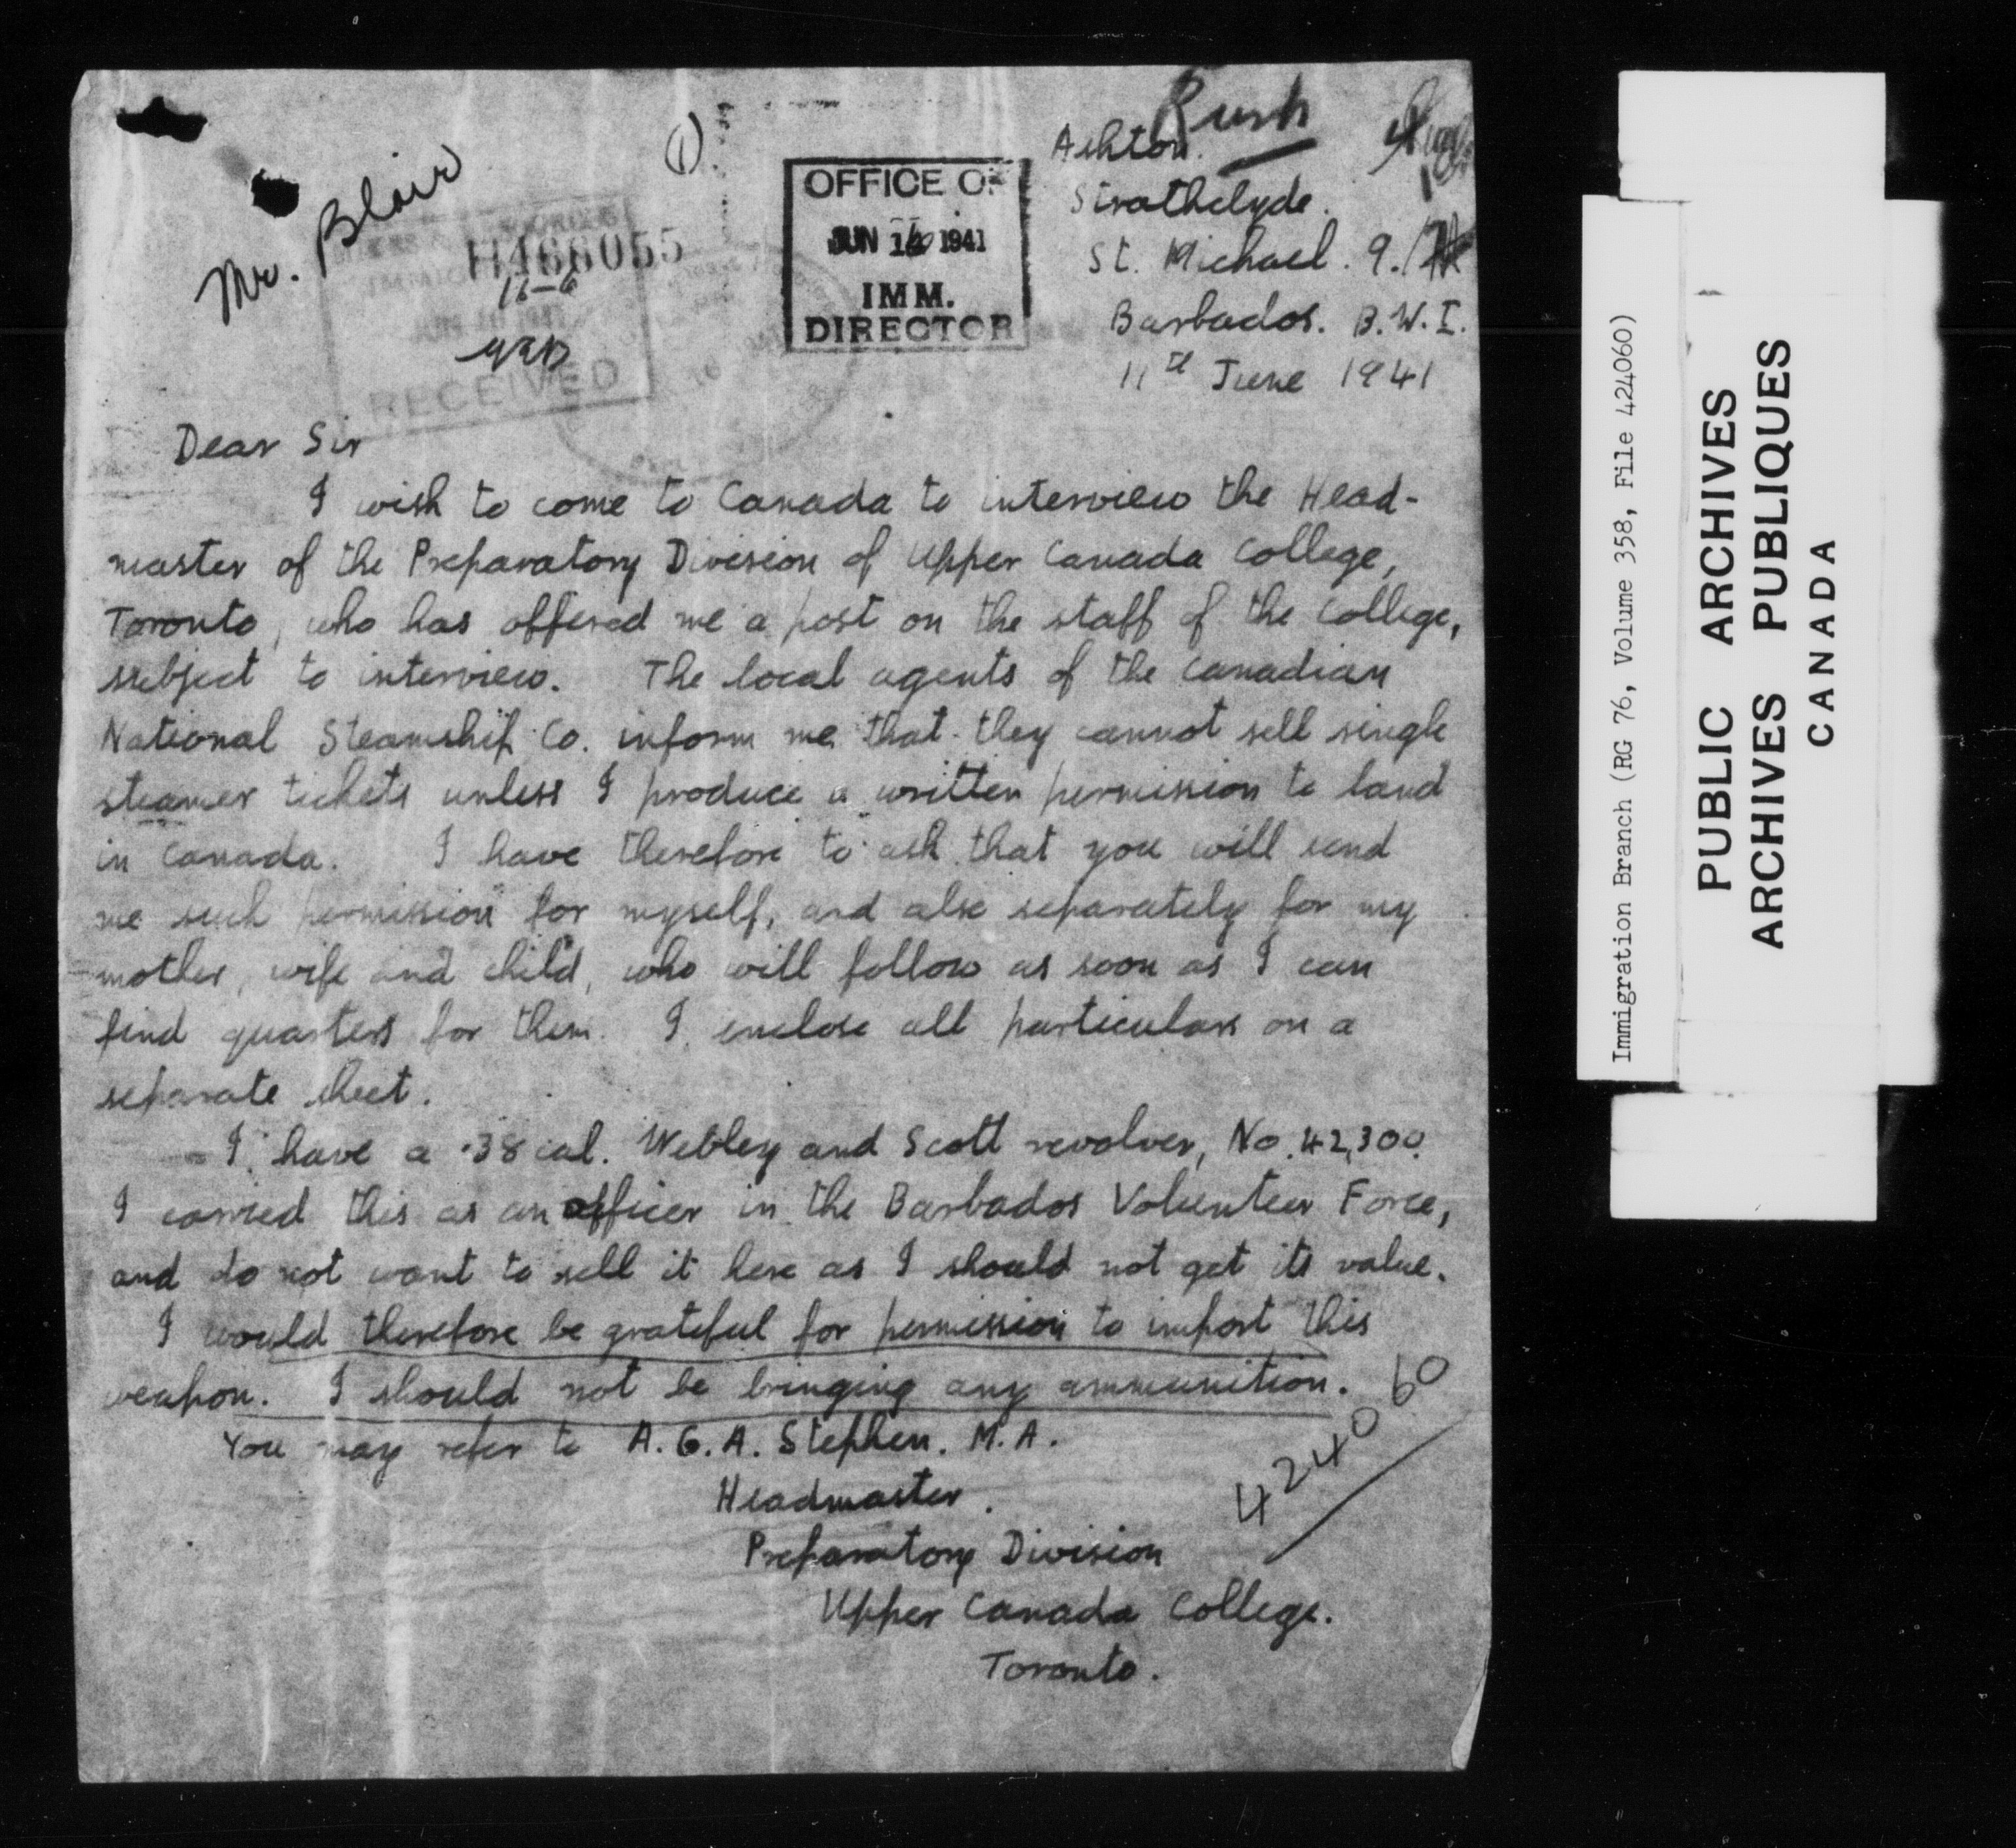 Rush
Mr. Blair
(1)
Ashton.
Strathclyde.
St. Michael. 9.
Barbados. B.W.I.
11th June 1941
H466055
16-6
RECEIVED
OFFICE OF
JUN 1941
IMM.
DIRECTOR
Dear Sir
I wish to come to Canada to interview the Head-
master of the Preparatory Division of Upper Canada College,
Toronto, who has offered me a post on the staff of the College,
subject to interview. The local agents of the Canadian
National Steamship Co. inform me that they cannot sell single
steamer tickets unless I produce a written permission to land
in Canada. I have therefore to ask that you will send
me such permission for myself, and also separately for my
mother, wife and child, who will follow as soon as I can
find quarters for them. I enclose all particulars on a
separate sheet.
I have a .38 cal. Webley and Scott revolver, No. 42,300.
I carried this as an officer in the Barbados Volunteer Force,
and do not want to sell it here as I should not get its value.
I would therefore be grateful for permission to import this
weapon. I should not be bringing any ammunition.
You may refer to A.G.A. Stephen. M.A.
Headmaster.
Preparatory Division
Upper Canada College.
Toronto.
424060
Immigration Branch (RG 76, Volume 358, File 424060)
PUBLIC ARCHIVES
ARCHIVES PUBLIQUES
CANADA